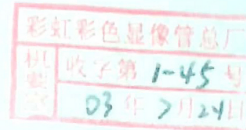 彩虹彩色显像管总厂
机
收字第 1-45 号
03 年 7月24日